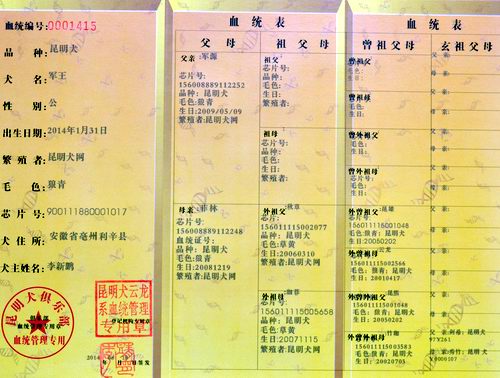 血统编号:0001415
品种:昆明犬
犬名:军王
性别:公
出生日期:2014年1月31日
繁殖者:昆明犬网
毛色:狼青
芯片号:900111880001017
犬住所:安徽省亳州利辛县
犬主姓名:李新鹏
昆明犬俱乐部
血统管理专用章
血统管理专用
昆明犬云龙
系血统管理
专用章
血统表
父母
祖父母
父亲:军源
芯片号:
156008889112252
品种:昆明犬
毛色:狼青
生日:2009/05/09
繁殖者:昆明犬网
祖父:
芯片号:
品种:
毛色:
生日:
繁殖者:
祖母:
芯片号:
品种:
毛色:
生日:
繁殖者:
母亲:菲林
芯片号:
156008889112248
血统证号:
品种:昆明犬
毛色:狼青
生日:20081219
繁殖者:昆明犬网
外祖父:秋草
芯片:
156011115002077
品种:昆明犬
毛色:草黄
生日:20060310
繁殖者:昆明犬网
外祖母:
芯片号:
156011115005658
品种:昆明犬
毛色:草黄
生日:20071115
繁殖者:昆明犬网
血统表
曾祖父母
玄祖父母
曾祖父:
芯片号:
毛色:
生日:
曾祖母:
芯片号:
毛色:
生日:
曾外祖父:
芯片号:
毛色:
生日:
曾外祖母:
芯片号:
毛色:
生日:
外曾祖父:
156011115001048
毛色:狼青;昆明犬
生日:20050202
外曾祖母:云龙
156011115002566
毛色:狼青;昆明犬
生日:20010417
外曾外祖父:
156011115001048
毛色:狼青;昆明犬
生日:20050202
外曾外祖母:
156011115003583
毛色:狼青;昆明犬
生日:20020705
父亲:
母亲:
父亲:
母亲:
父亲:
母亲:
父亲:
母亲:
父亲:
母亲:
父亲:
母亲:
父亲:
母亲:
97Y261